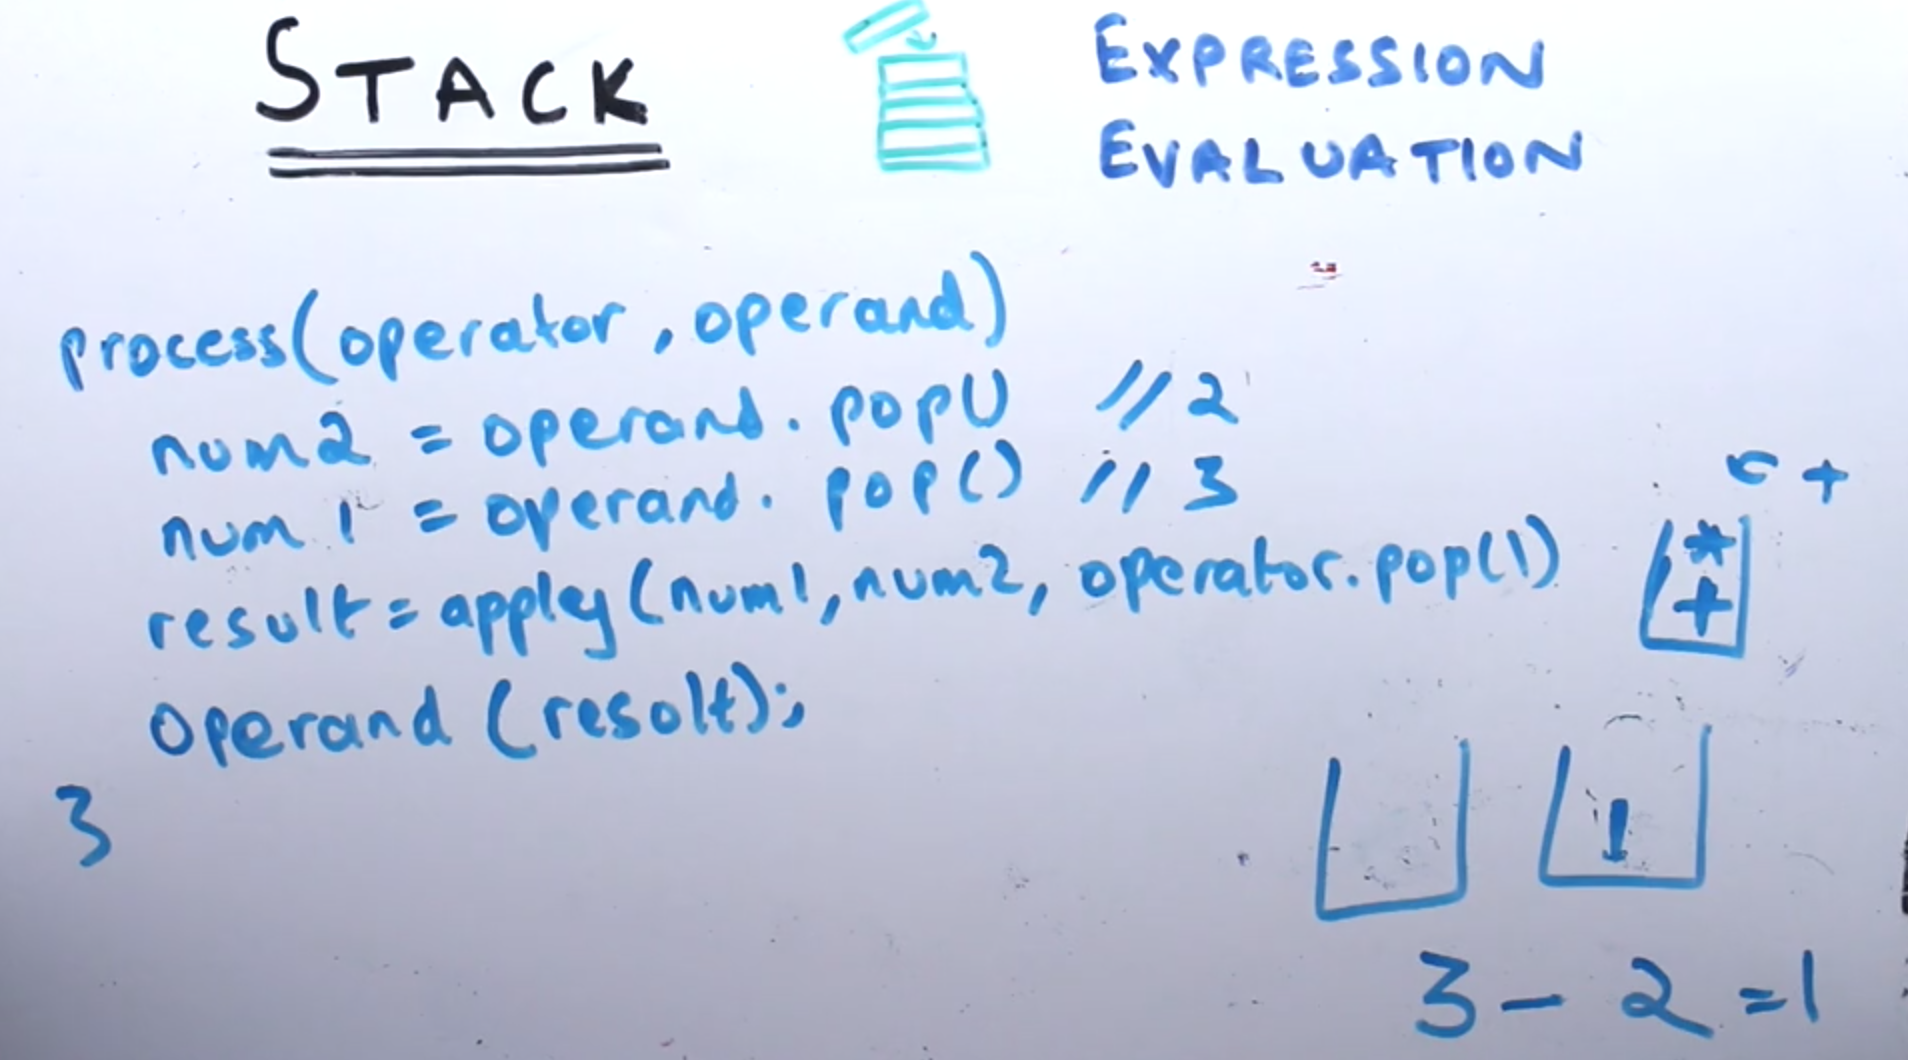 STACK
EXPRESSION
EVALUATION
process(operator, operand)
num2 = operand. pop() // 2
num 1 = operand. pop() // 3
result = appley (num1, num2, operator.pop())
operand (result);
}
+
*
+
1
3 - 2 = 1